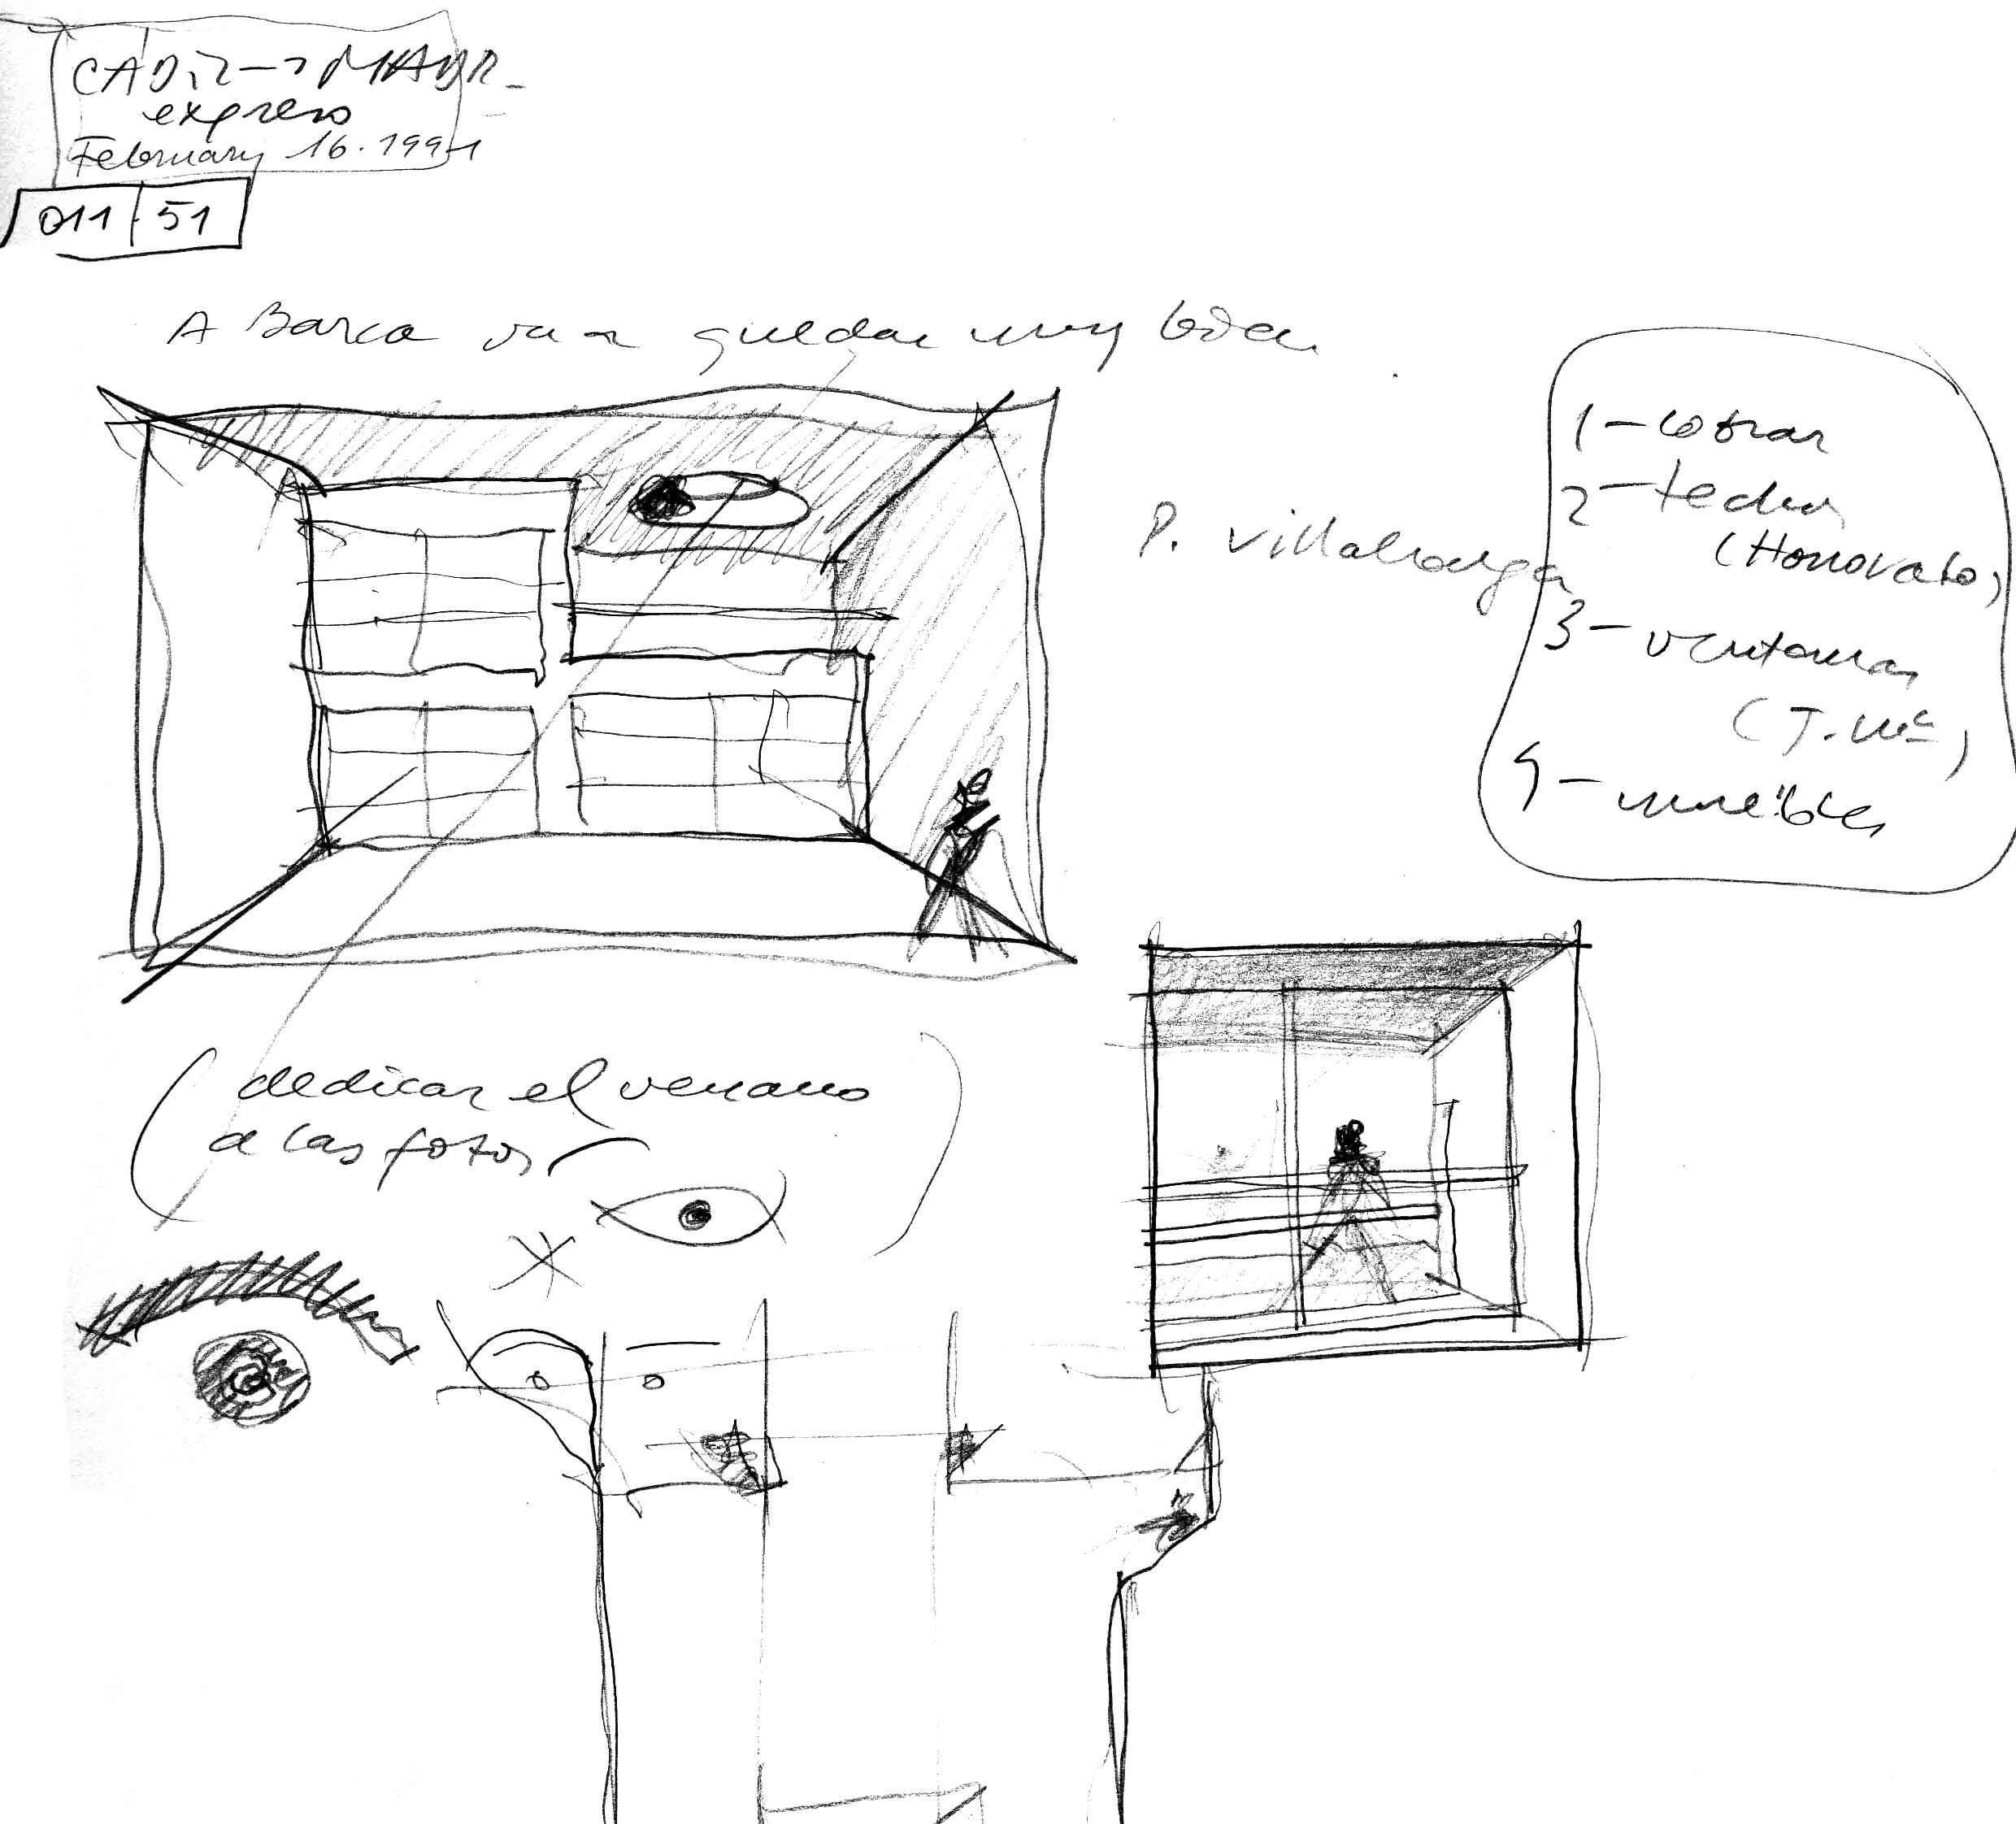 CADiz -> MADR-
expreso
February 16. 1991
011 51
A Barca va a quedar muy bien
P. Villalonga
1 - cobrar
2 - techos
(Honorato)
3 - ventanas
(J. Mª)
4 - muebles
(dedicar el verano
a las fotos)